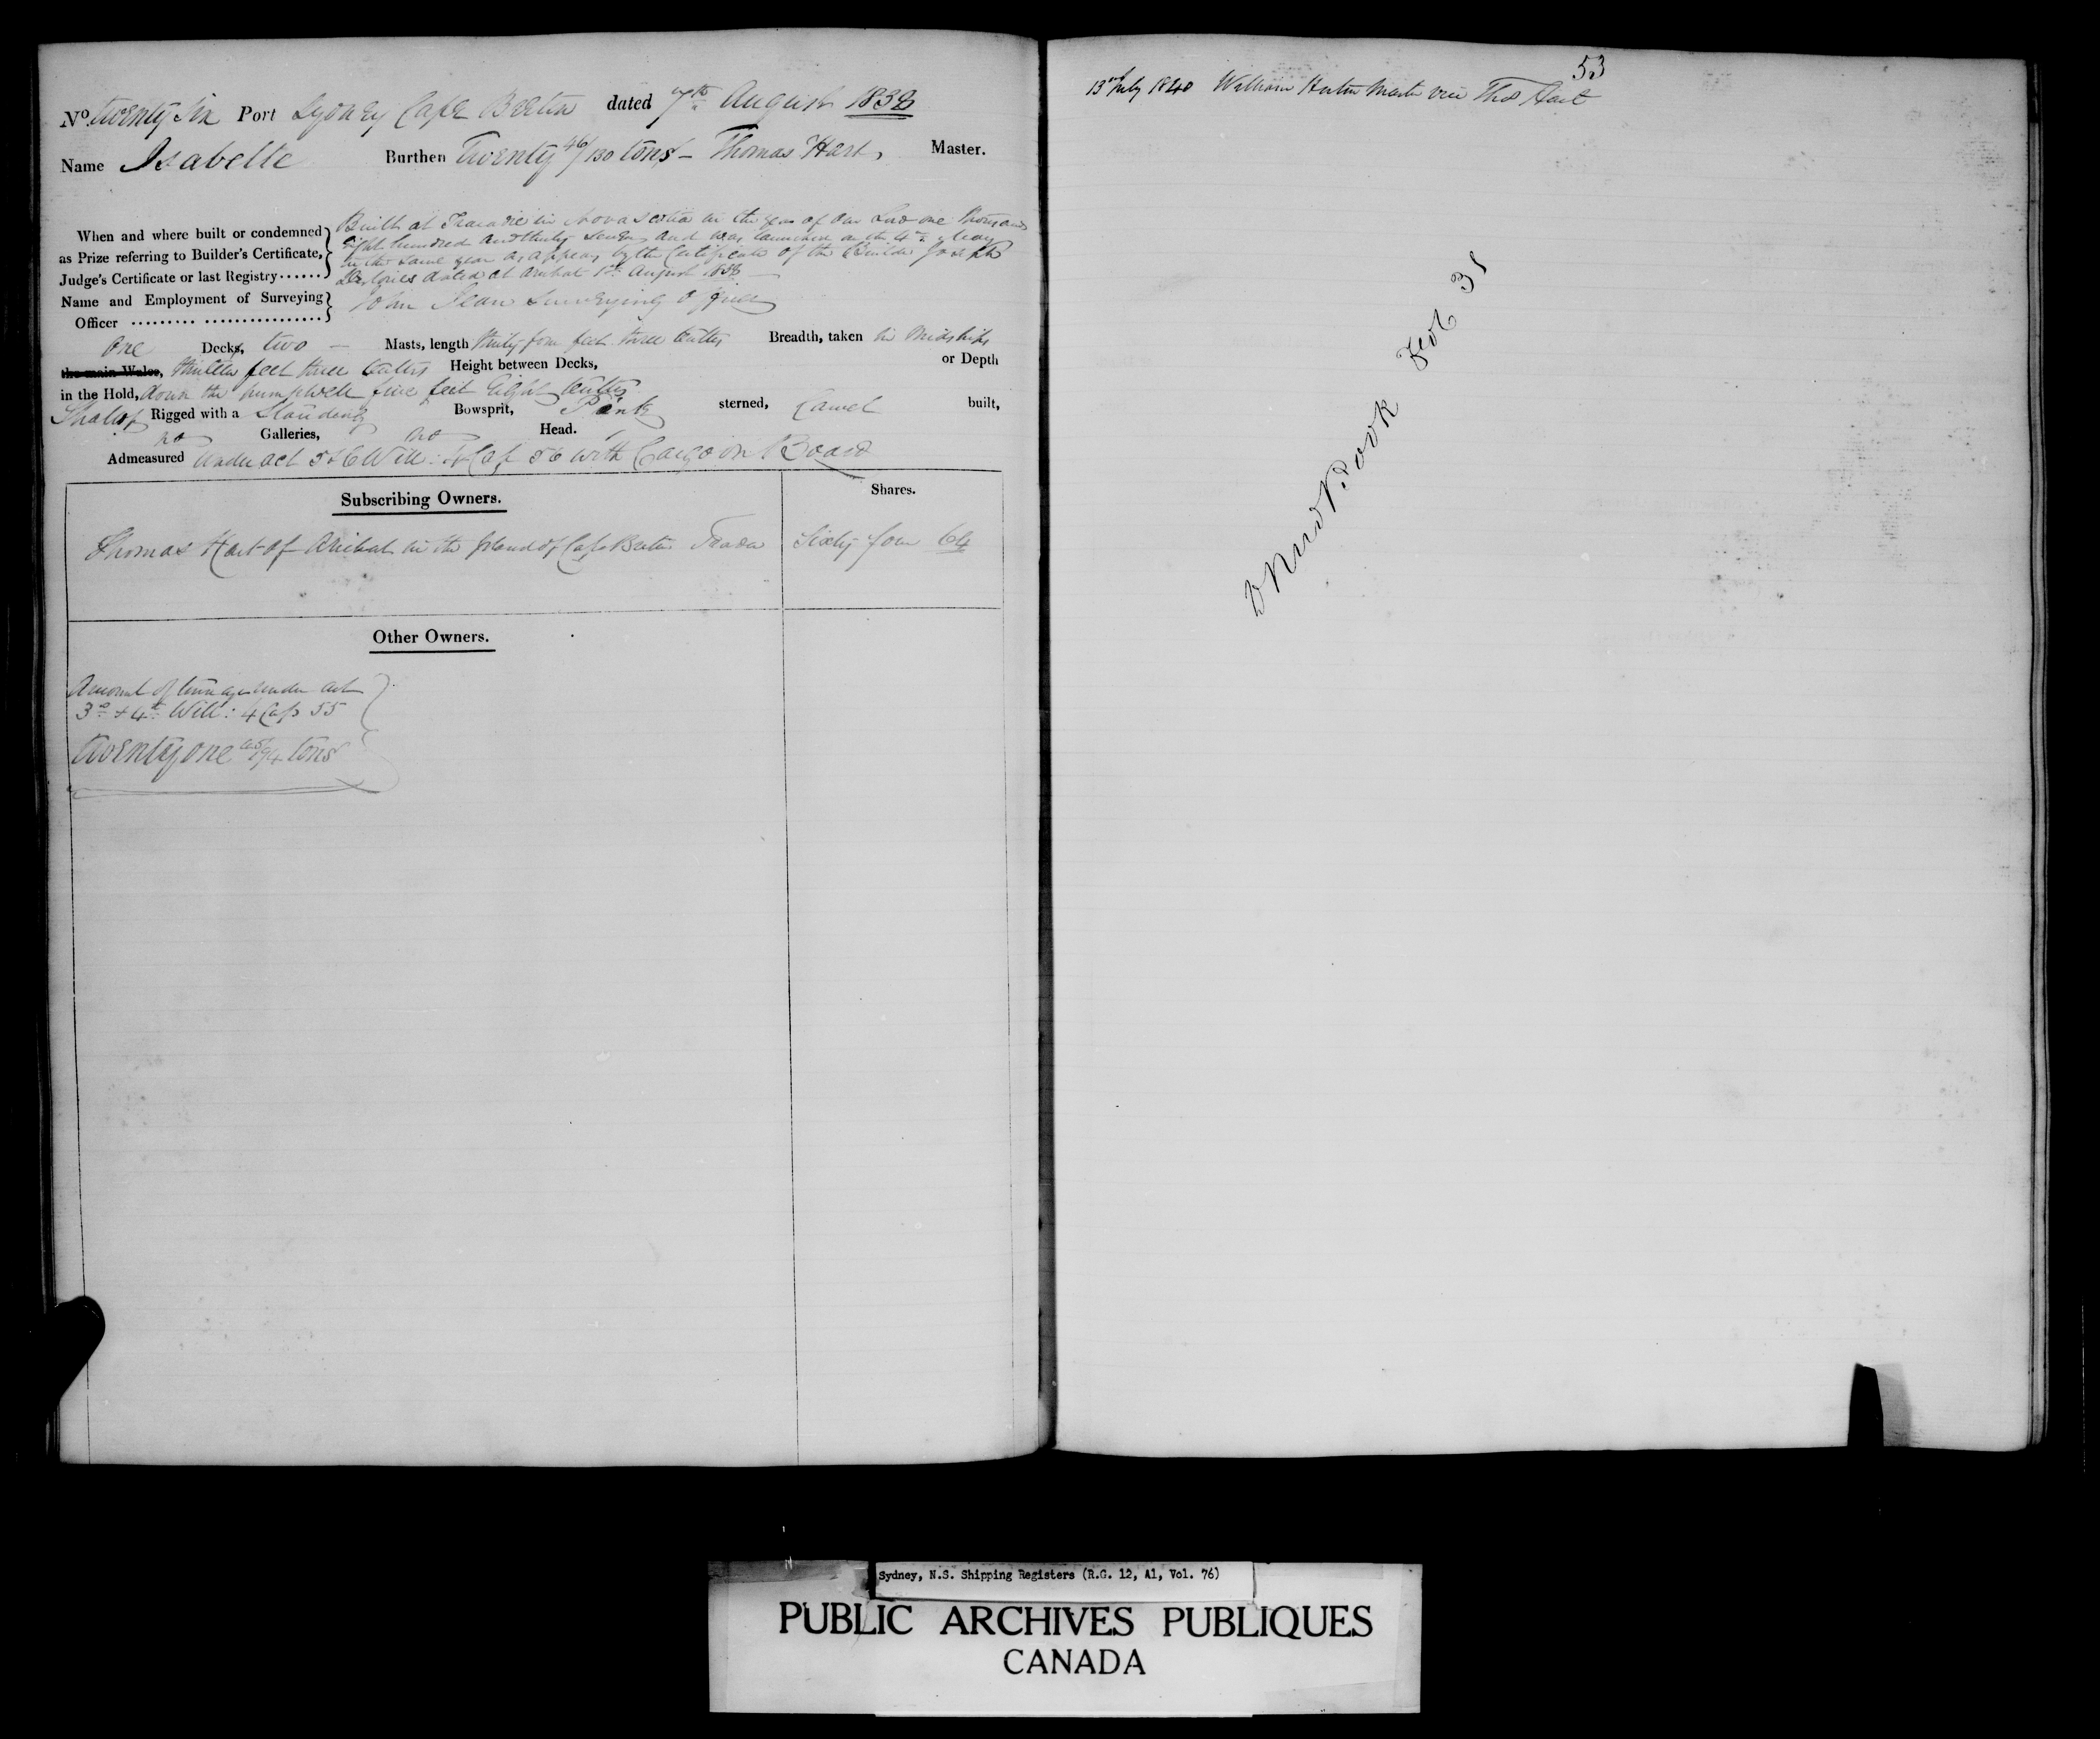 No. twenty six Port Sydney Cape Breton dated 7th August 1838
Name Isabella Burthen Twenty 46/130 tons - Thomas Hart, Master.
When and where built or condemned as Prize referring to Builder's Certificate, Judge's Certificate or last Registry......
Built at Tracadie in Nova Scotia in the year of our Lord one thousand
Eight hundred and thirty seven and was launched on the 4th May
in the same year as appears by the Certificate of the Builder Joseph
dated at Arichat 1st August 1838
Name and Employment of Surveying Officer
John Jean Surveying officer
One Decks, two - Masts, length thirty four feet three tenths Breadth, taken in Midships
the main Wales, thirteen feet three tenths Height between Decks, or Depth
in the Hold, down the pumpwell five feet Eight tenths
Shallop Rigged with a Standing Bowsprit, Pink sterned, Carvel built,
no Galleries, no Head.
Admeasured Under act 5 & 6 Will: 4 Cap 56 with Cargo on Board
Subscribing Owners. Shares.
Thomas Hart of Arichat in the Island of Cape Breton Trader Sixty four 64
Other Owners.
Amount of tonnage under act
3d & 4th Will: 4 Cap 55
twenty one /94 tons
53
13 July 1840 William Master vice Thos Hart
New Book Fol 31
Sydney, N.S. Shipping Registers (R.G. 12, A1, Vol. 76)
PUBLIC ARCHIVES PUBLIQUES
CANADA